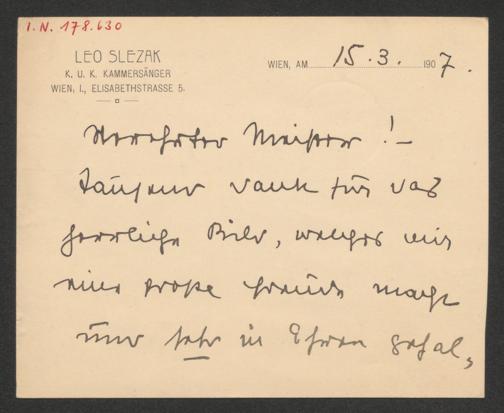 I.N. 178.630
LEO SLEZAK
K. U. K. KAMMERSÄNGER
WIEN, I., ELISABETHSTRASSE 5.
WIEN, AM 15.3. 1907.
Verehrter Meister! –
Tausend Dank für das
herrliche Bild, welches mir
eine große Freude macht
und sehr in Ehren gehal,